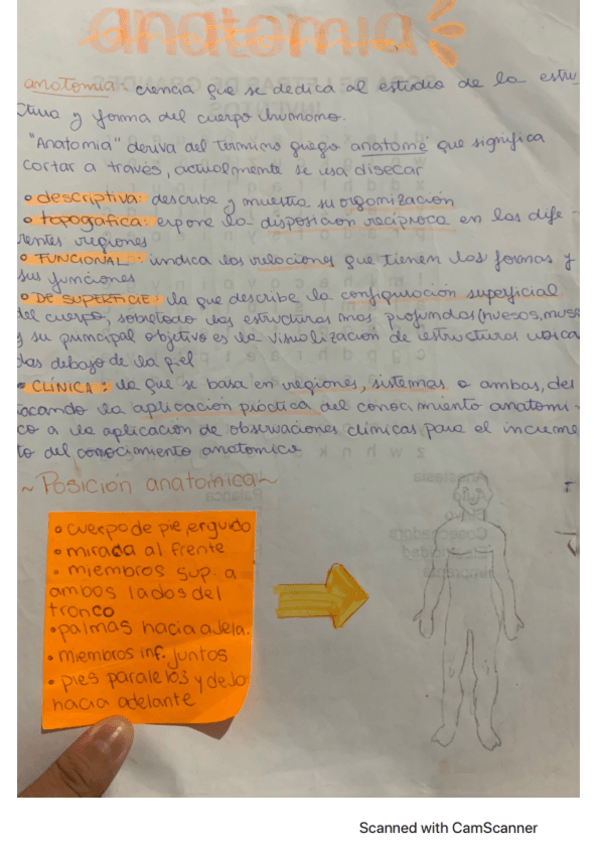 anatomia
anatomia: ciencia que se dedica al estudio de la estru
ctura y forma del cuerpo humano.
"Anatomia" deriva del término griego anatomé que significa
cortar a través, actualmente se usa disecar
• descriptiva: describe y muestra su organización
• topografica: expone la disposicion reciproca en las dife-
rentes regiones
• FUNCIONAL: indica las relaciones que tienen las formas y
sus funciones
• DE SUPERFICIE: la que describe la configuracion superficial
del cuerpo, sobretodo las estructuras mas profundas (huesos, musc
y su principal objetivo es la visualización de estructuras ubica
das debajo de la piel
• CLÍNICA: la que se basa en regiones, sistemas o ambas, des
tacando la aplicación práctica del conocimiento anatomi-
co a la aplicación de observaciones clínicas para el increme
to del conocimiento anatomico
~Posición anatomica~
• cuerpo de pie, erguido
• mirada al frente
• miembros sup. a
ambos lados del
tronco
• palmas hacia adela.
• miembros inf. juntos
• pies paralelos y dedo
hacia adelante
Scanned with CamScanner